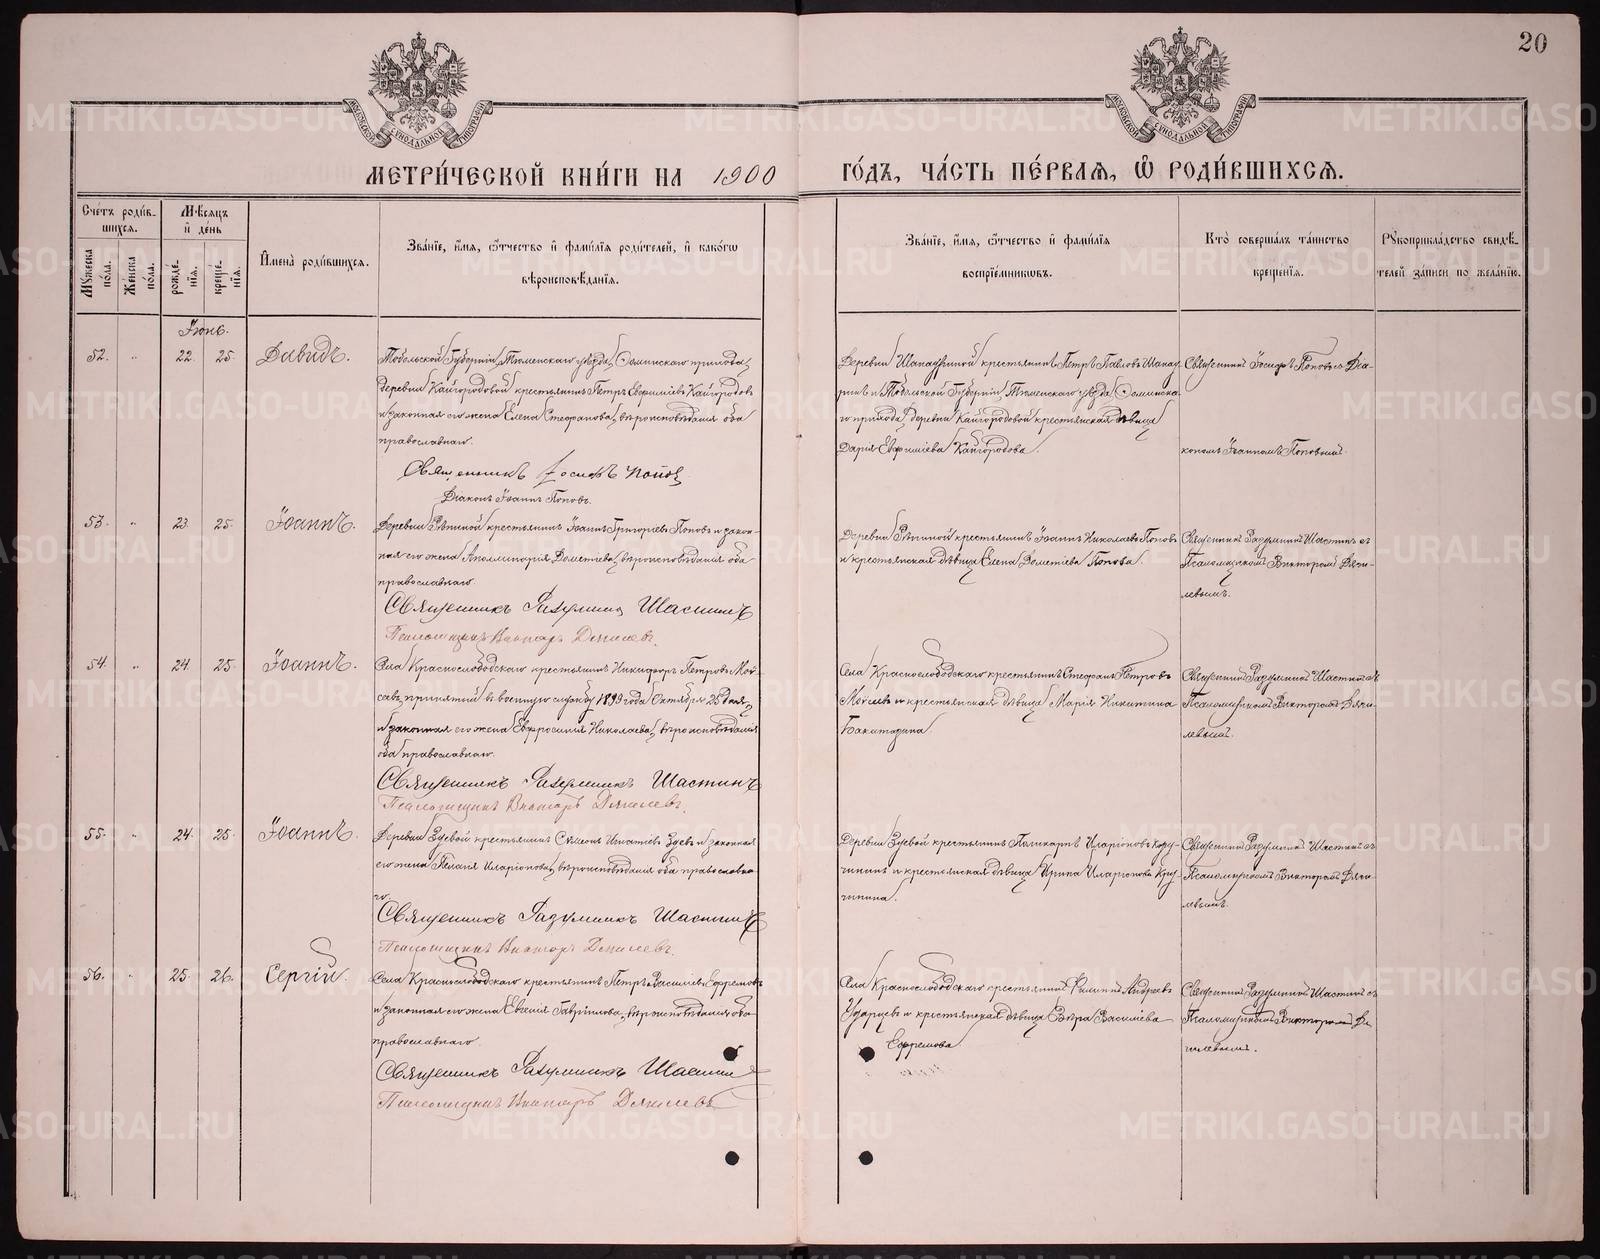 20
МОСКОВСКОЙ СѴНОДАЛЬНОЙ ТИПОГРАФІИ
МОСКОВСКОЙ СѴНОДАЛЬНОЙ ТИПОГРАФІИ
МЕТРИ́ЧЕСКОЙ КНИ́ГИ НА 1900
ГО́ДЪ, ЧА́СТЬ ПЕ́РВАѦ, Ѡ҆ РОДИ́ВШИХСѦ.
Сче́тъ роди́в-
шихсѧ.
Мꙋ́жеска по́ла.
Же́нска по́ла.
Мѣ́сѧцъ
и҆ де́нь
рожде́-нїѧ.
креще́-нїѧ.
И҆мена̀ роди́вшихсѧ.
Зва́нїе, и҆́мѧ, ѻ҆́тчество и҆ фами́лїѧ роди́телей, и҆ како́гѡ
вѣроисповѣ́данїѧ.
Зва́нїе, и҆́мѧ, ѻ҆́тчество и҆ фами́лїѧ
воспрїе́мникѡвъ.
Кто̀ соверша́лъ та́инство
креще́нїѧ.
Рꙋкоприкла́дство свидѣ́-
телей за́писи по жела́нїю.
Іюнь.
52. " 22. 25. Давидъ.
Тобольской Губерніи, Тюменскаго уѣзда, прихода,
деревни Кайгородовой крестьянинъ Петръ Евфиміевъ Кайгородовъ
и законная его жена Елена Стефанова, вѣроисповѣданія оба
православнаго.
Священникъ Іосифъ Попов
Діаконъ Іоаннъ Поповъ.
Деревни крестьянинъ Петръ Павловъ
и Тобольской Губерніи, Тюменскаго уѣзда,
го прихода, деревни Кайгородовой крестьянская дѣвица
Дарія Евфиміева Кайгородова.
Священникъ Іосифъ Поповъ съ Діа-
кономъ Іоанномъ Поповымъ.
53. " 23. 25. Іоаннъ.
Деревни Рѣпиной крестьянинъ Іоаннъ Григоріевъ Поповъ и закон-
ная его жена Аполлинарія Дометіева, вѣроисповѣданія оба
православнаго.
Священникъ Разумникъ Шастинъ
Псаломщикъ Викторъ
Деревни Рѣпиной крестьянинъ Іоаннъ Николаевъ Поповъ
и крестьянская дѣвица Елена Дометіева Попова.
Священникъ Разумникъ Шастинъ съ
Псаломщикомъ Викторомъ
54. " 24. 25. Іоаннъ.
Села Краснослободскаго крестьянинъ Никифоръ Петровъ Мок-
принятый въ военную службу 1899 года Октября 25 дня,
и законная его жена Евфросинія Николаева, вѣроисповѣданія
оба православнаго.
Священникъ Разумникъ Шастинъ
Псаломщикъ Викторъ
Села Краснослободскаго крестьянинъ Стефанъ Петровъ
и крестьянская дѣвица Марія Никитина
Священникъ Разумникъ Шастинъ съ
Псаломщикомъ Викторомъ
55. " 24. 25. Іоаннъ.
Деревни Зуевой крестьянинъ Симеонъ Игнатіевъ Зуевъ и законная
его жена Пелагія Иларіонова, вѣроисповѣданія оба православна-
го.
Священникъ Разумникъ Шастинъ
Псаломщикъ Викторъ
Деревни Зуевой крестьянинъ Поликарпъ Иларіоновъ Кру-
чининъ и крестьянская дѣвица Ирина Иларіонова Кру-
чинина.
Священникъ Разумникъ Шастинъ съ
Псаломщикомъ Викторомъ
56. " 25. 26. Сергій.
Села Краснослободскаго крестьянинъ Петръ Василіевъ Ефремовъ
и законная его жена Евгенія Гавріилова, вѣроисповѣданія оба
православнаго.
Священникъ Разумникъ Шастин
Псаломщикъ Викторъ
Села Краснослободскаго крестьянинъ Филиппъ Андреевъ
Ударцевъ и крестьянская дѣвица Вѣра Василіева
Ефремова.
Священникъ Разумникъ Шастинъ съ
Псаломщикомъ Викторомъ
METRIKI.GASO-URAL.RU